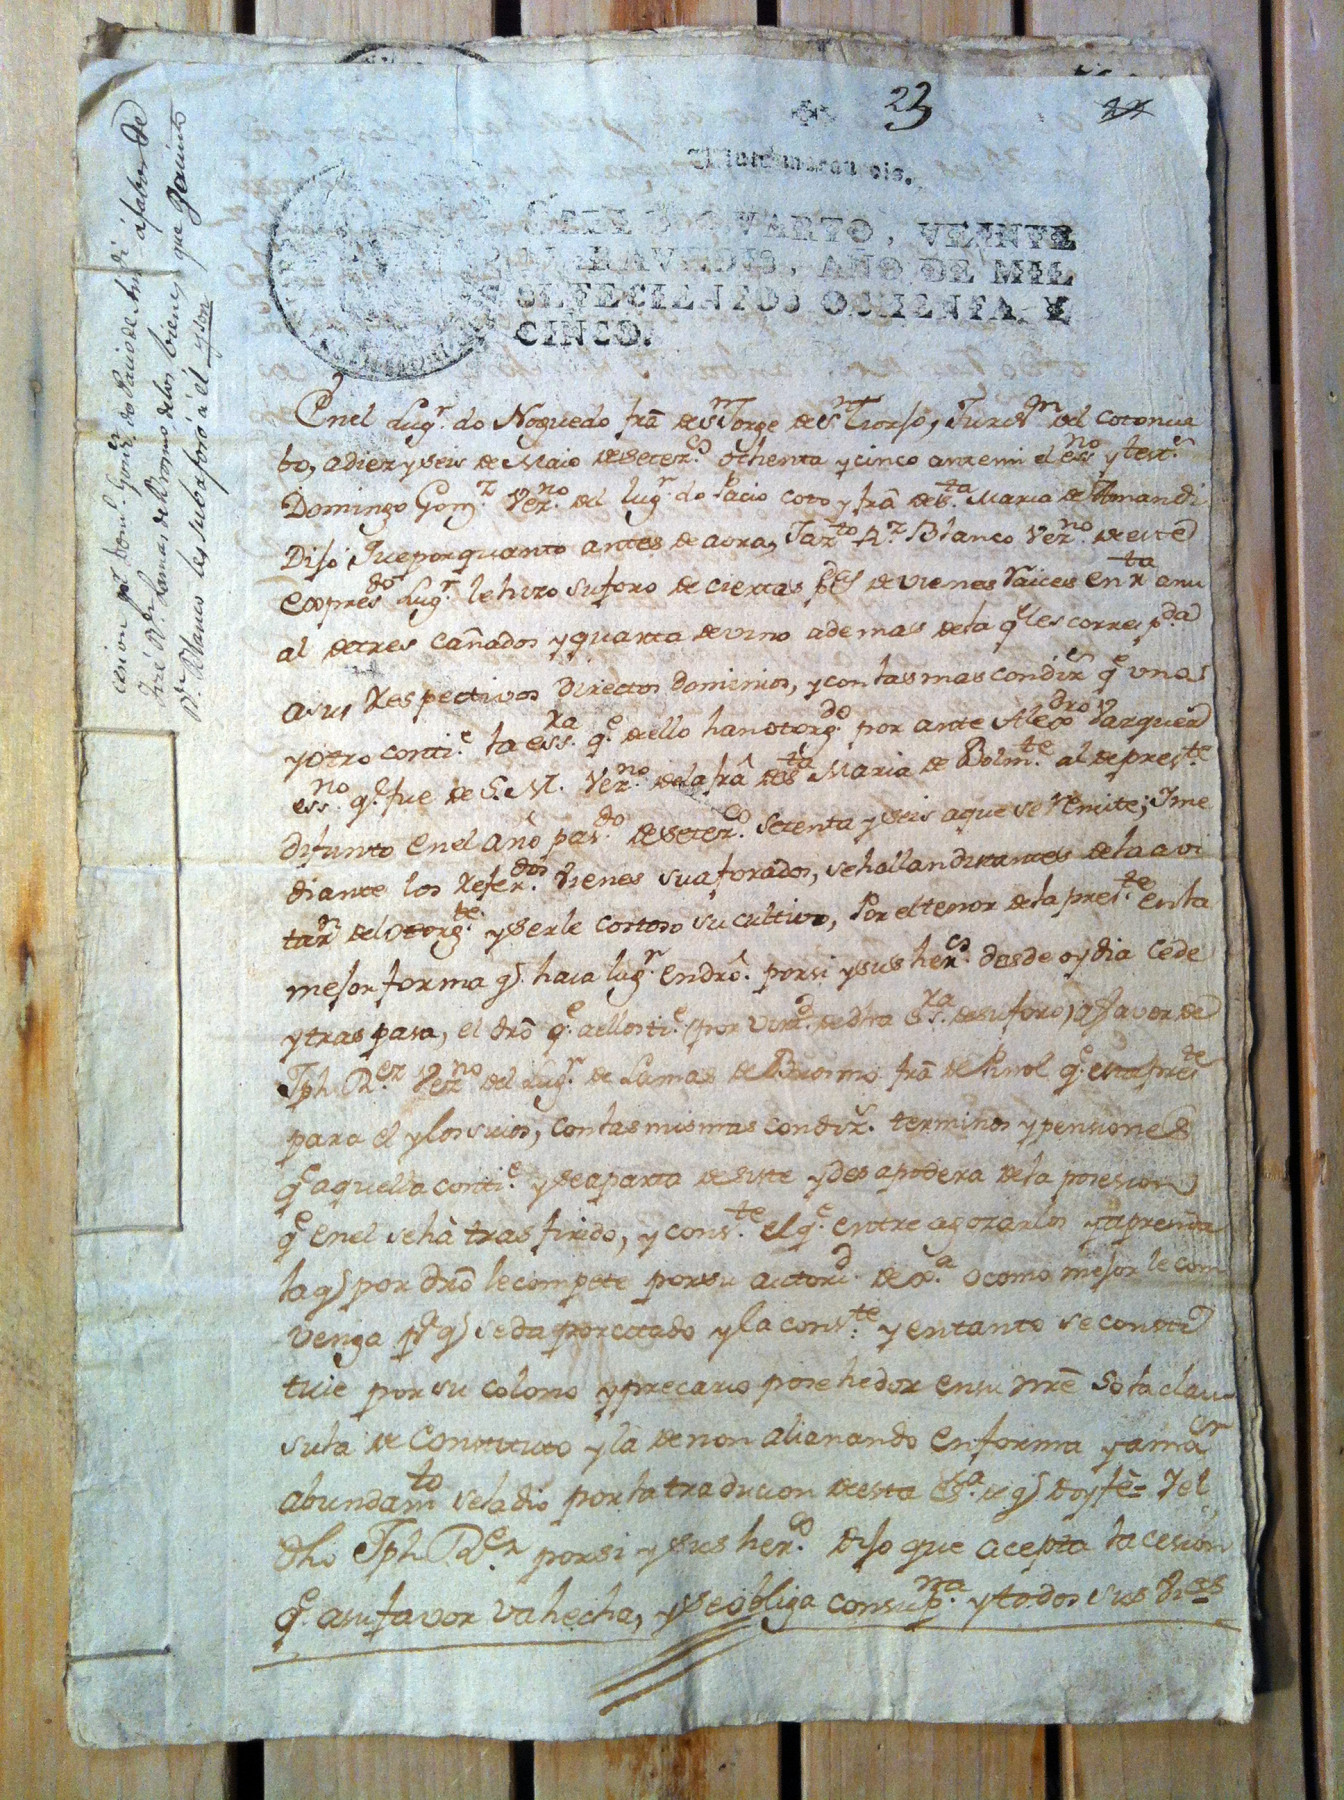 23
SELLO QVARTO, VEINTE
MARAVEDIS, AÑO DE MIL
SETECIENTOS OCHENTA Y
CINCO.
cesion q.e Dom.o Gom.z do Pacio de Am.di á fabor de
José R.z Lamas de Bromo, de los bienes que Jacinto
R.z Blanco les subaforó á él y son
Enel Lugr. do Noguedo frã de Sn Jorge de Sn Tiorso, Jurisn del coto nue
bo, a diez y seis de Maio de setezcos. ochenta y cinco ante mi el essno y testos.
Domingo Gomz. Vezno. del lugr. do Pacio coto y frã de Sta Maria de Amandi
Dijo Que por quanto antes de aora, Jazto Rz Blanco Vezno. de este
expresdo Lugr. le hizo suforo de ciertas pzas de vienes raices en rta anu
al de tres cañados y quarta de vino ademas de la qe les correspda
a sus Respectivos Directos dominios, y con las mas condizs qe unas
y otro contie. la essra. qe. de ello han otorgdo. por ante Alexdro Vazquez
essno. qe fue de S. M. Vezno. de la frã de Sta Maria de Bolmte. al de preste.
difunto en el año pasdo. de setezcos. setenta y seis a que se remite; Y me
diante los referdos. vienes suaforados, se hallan distantes de la avi
tazn del otorgte. y serle costoso su cultivo, Por el tenor de la preste. en la
mejor forma q. haia lugr. en drô. por si y sus hercs. desde oy dia cede
y traspasa, el drô qe. a ellos tie. (por virtd. de dha essra. de suforo) a favor de
Jph Rez Vezno del Lugr. de Lamas de Bromo frã de Pinol qe. esta preste
para el y los suios, con las mismas condizs. terminos y pensiones
qe aquella contie. y se aparta desiste y desapodera de la posesion
qe en el se hà trasfirido, y conste. el qe. entre a gozarlos y aprenda
la q. por drô le compete por su autorid. de xa. o como mejor le com
venga pr. q. se da por citado y la conste. y en tanto se consti
tuie por su colono y precario posehedor en su nrê so la clau
sula de constituto y la de non alianando en forma y a maor
abundamto se la dio por la tradicion de esta essra. de q. doy fê= Y el
dho Jph Rez por si y sus hercos. dijo que acepta la cesion
qe. a su favor va hecha, y se obliga con su pna. y todos sus vies